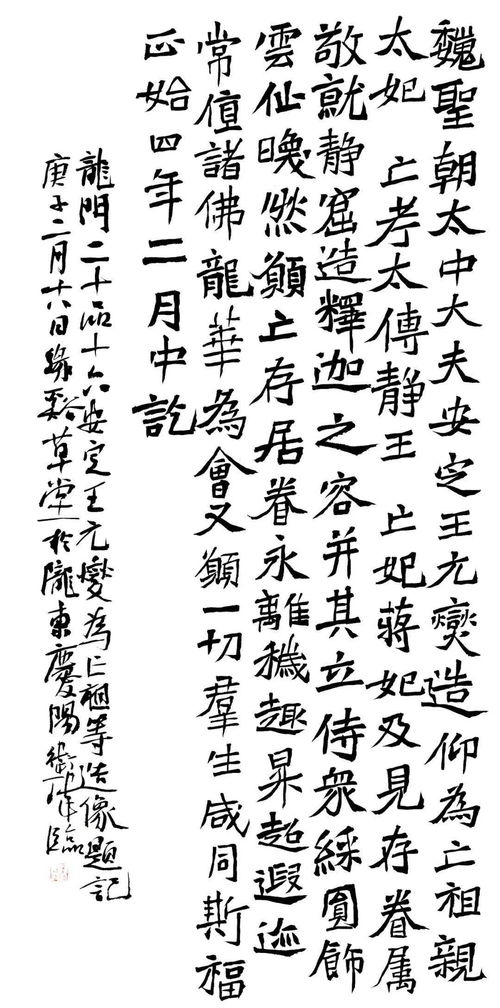 魏聖朝太中大夫安定王元燮造仰為亡祖親
太妃 亡考太傅静王 亡妃蔣妃及見存眷属
敬就静窟造釋迦之容并其立侍衆綵圓飾
雲仙曒然願亡存居眷永離穢趣昇超遐迩
常值諸佛龍華為會又願一切羣生咸同斯福
正始四年二月中訖
龍門二十品十六安定王元燮為亡祖等造像題記
庚子二月十六日谿草堂於隴東慶陽臨